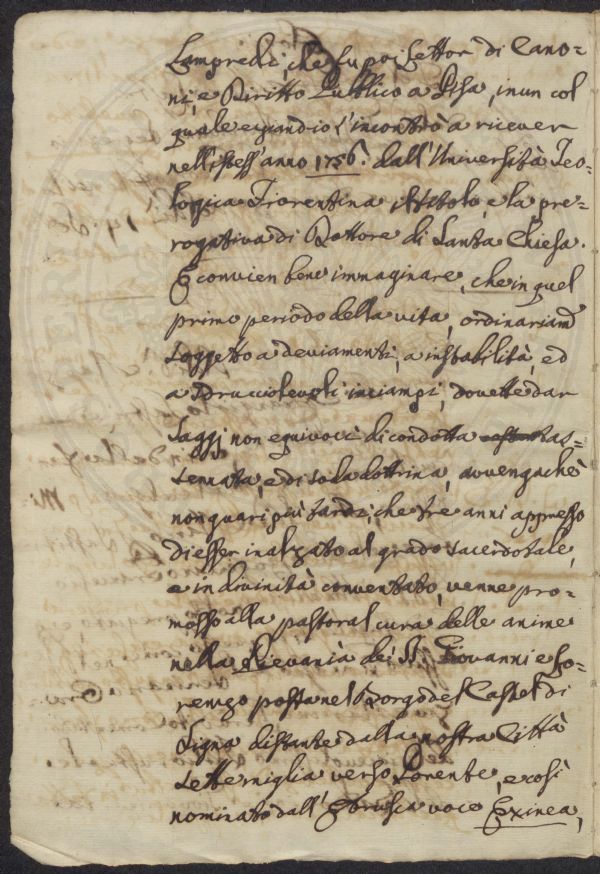 Lampredi, che fu poi Lettor di Cano-
ni, e Diritto Pubblico a Pisa, in un col
quale eziandio s'incontrò a ricever
nell'istess'anno 1756. dall'Università Teo-
logica Fiorentina il titolo, e la pre-
rogativa di Dottore di Santa Chiesa.
E convien bene immaginare, che in quel
primo periodo della vita, ordinariamᵉ
soggetto a deviamenti, a instabilità, ed
a sdrucciolevoli inciampi, dovette dar
saggj non equivoci di condotta as-
sennata, e di soda dottrina, avvengachè
non guari più tardi, che tre anni appresso
di esser inalzato al grado sacerdotale,
e in divinità conventato, venne pro-
mosso alla pastoral cura delle anime
nella Pievania dei SS. Giovanni e Lo-
renzo posta nel Borgo del Castel di
Signa distante dalla nostra Città
sette miglia verso Ponente, e così
nominato dall'Etrusca voce Exinea,